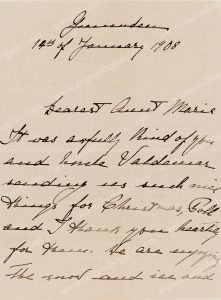 Gmunden
14th of January 1908
Dearest Aunt Marie
It was awfully kind of you
and Uncle Valdemar
sending us such nice
things for Christmas,
and I thank you heartily
for them. We are enjoying
the snow and ice and